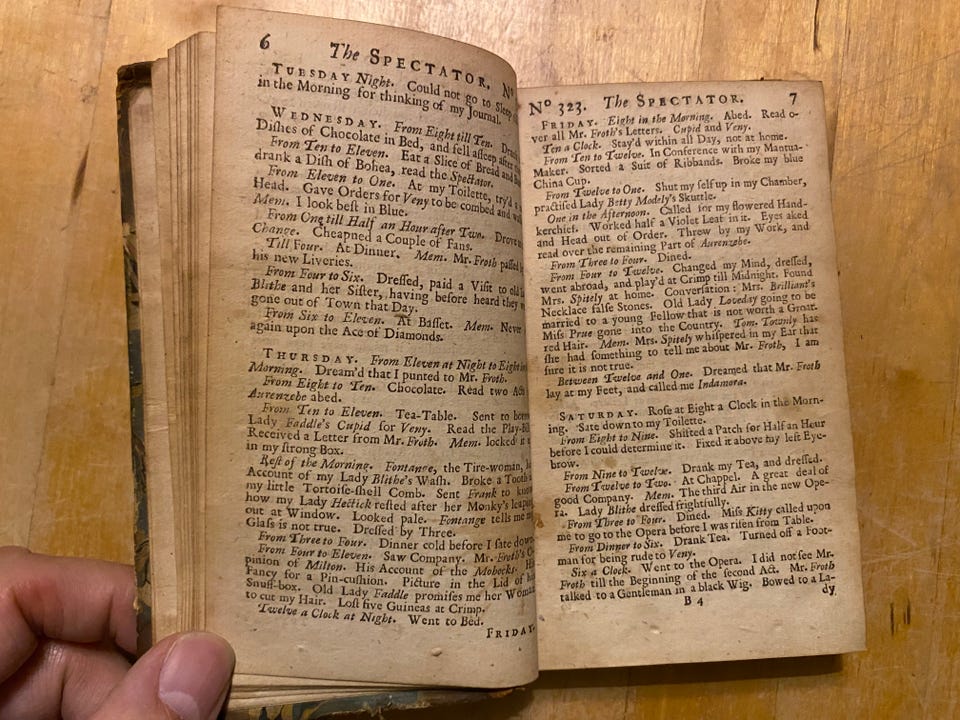 6 The SPECTATOR. No
TUESDAY Night. Could not go to Sleep
in the Morning for thinking of my Journal.
WEDNESDAY. From Eight till Ten.
Dishes of Chocolate in Bed, and fell asleep after
From Ten to Eleven. Eat a Slice of Bread and
drank a Dish of Bohea, read the Spectator.
From Eleven to One. At my Toilette, try'd a
Head. Gave Orders for Veny to be combed and
Mem. I look best in Blue.
From One till Half an Hour after Two. Drove
Change. Cheapned a Couple of Fans.
Till Four. At Dinner. Mem. Mr. Froth passed
his new Liveries.
From Four to Six. Dressed, paid a Visit to old
Blithe and her Sister, having before heard they
gone out of Town that Day.
From Six to Eleven. At Basset. Mem. Never
again upon the Ace of Diamonds.
THURSDAY. From Eleven at Night to Eight in
Morning. Dream'd that I punted to Mr. Froth.
From Eight to Ten. Chocolate. Read two Acts
Aurenzebe abed.
From Ten to Eleven. Tea-Table. Sent to
Lady Faddle's Cupid for Veny. Read the
Received a Letter from Mr. Froth. Mem. locked it
in my strong Box.
Rest of the Morning. Fontange, the Tire-woman,
Account of my Lady Blithe's Wash. Broke a Tooth
my little Tortoise-shell Comb. Sent Frank to know
how my Lady Hectick rested after her Monky's leaping
out at Window. Looked pale. Fontange tells me
Glass is not true. Dressed by Three.
From Three to Four. Dinner cold before I sate down.
From Four to Eleven. Saw Company. Mr. Froth's O-
pinion of Milton. His Account of the Mohocks. His
Fancy for a Pin-cushion. Picture in the Lid of his
Snuff-box. Old Lady Faddle promises me her Woman
to cut my Hair. Lost five Guineas at Crimp.
Twelve a Clock at Night. Went to Bed.
FRIDAY.
No 323. The SPECTATOR. 7
FRIDAY. Eight in the Morning. Abed. Read o-
ver all Mr. Froth's Letters. Cupid and Veny.
Ten a Clock. Stay'd within all Day, not at home.
From Ten to Twelve. In Conference with my Mantua-
Maker. Sorted a Suit of Ribbands. Broke my blue
China Cup.
From Twelve to One. Shut my self up in my Chamber,
practised Lady Betty Modely's Skuttle.
One in the Afternoon. Called for my flowered Hand-
kerchief. Worked half a Violet Leaf in it. Eyes aked
and Head out of Order. Threw by my Work, and
read over the remaining Part of Aurenzebe.
From Three to Four. Dined.
From Four to Twelve. Changed my Mind, dressed,
went abroad, and play'd at Crimp till Midnight. Found
Mrs. Spitely at home. Conversation: Mrs. Brilliant's
Necklace false Stones. Old Lady Loveday going to be
married to a young Fellow that is not worth a Groat.
Miss Prue gone into the Country. Tom. Townly has
red Hair. Mem. Mrs. Spitely whispered in my Ear that
she had something to tell me about Mr. Froth, I am
sure it is not true.
Between Twelve and One. Dreamed that Mr. Froth
lay at my Feet, and called me Indamora.
SATURDAY. Rose at Eight a Clock in the Morn-
ing. Sate down to my Toilette.
From Eight to Nine. Shifted a Patch for Half an Hour
before I could determine it. Fixed it above my left Eye-
brow.
From Nine to Twelve. Drank my Tea, and dressed.
From Twelve to Two. At Chappel. A great deal of
good Company. Mem. The third Air in the new Ope-
ra. Lady Blithe dressed frightfully.
From Three to Four. Dined. Miss Kitty called upon
me to go to the Opera before I was risen from Table.
From Dinner to Six. Drank Tea. Turned off a Foot-
man for being rude to Veny.
Six a Clock. Went to the Opera. I did not see Mr.
Froth till the Beginning of the second Act. Mr. Froth
talked to a Gentleman in a black Wig. Bowed to a La-
B 4 dy